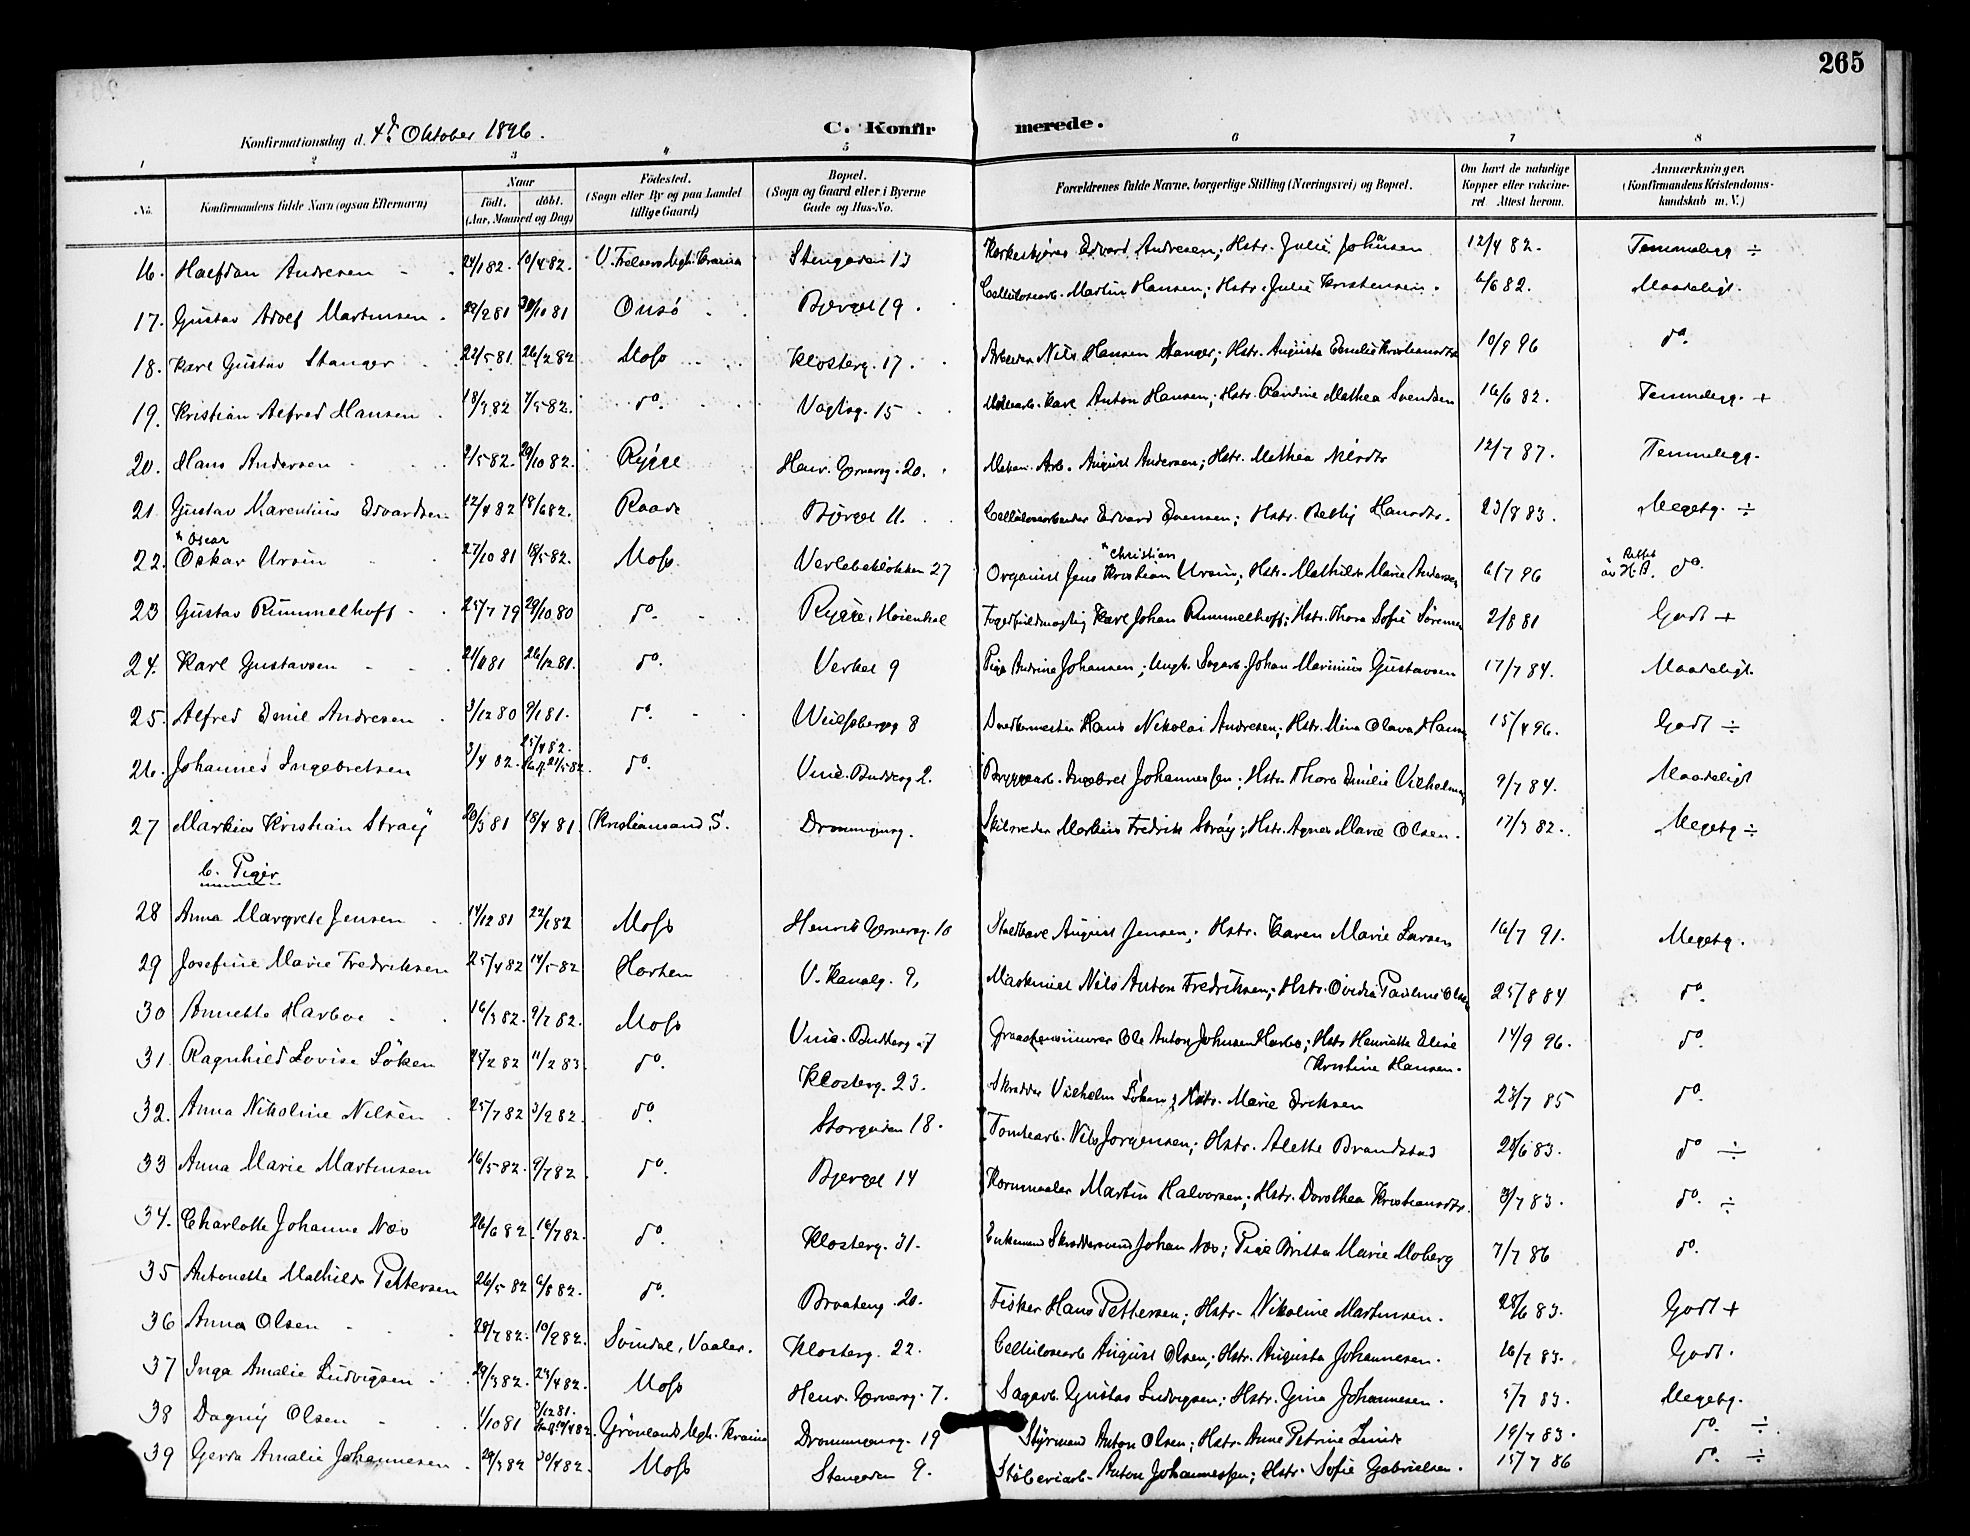 265
Konfirmationsdag d. 4de Oktober 1896.
C. Konfirmerede.
1 2 3 4 5 6 7 8
No. Konfirmandens fulde Navn (ogsaa Efternavn) Naar født. døbt. (Aar, Maaned og Dag) Fødested. (Sogn eller By og paa Landet tillige Gaard) Bopæl. (Sogn og Gaard eller i Byerne Gade og Hus-No. Forældrenes fulde Navne, borgerlige Stilling (Næringsvei) og Bopæl. Om havt de naturlige Kopper eller vakcineret Attest herom. Anmærkninger. (Konfirmandens Kristendomskundskab m. V.)
16. Halfdan Andresen 24/1 82. 10/4 82. Stengaden 13 Edvard Andresen; Hstr. Julie Johansen 12/4 82. Temmelig ÷
17. Gustav Adolf Martinsen 29/2 81 30/10 81 Onsö Bjerget 19 Cellulosearb. Martin Hansen; Hstr. Julie Kristensen. 6/6 82. Maadeligt.
18. Karl Gustav Stanger 22/5 81 26/2 82 Moss Klosterg. 17. Arbeider Nils Hansen Stanger; Hstr. Augusta Emilie Kristiansdtr 10/9 96 do.
19. Kristian Alfred Hansen 18/3 82 7/5 82. do. Vogtsg. 15 Karl Anton Hansen; Hstr. Randine Mathea Svendsen 16/6 82. Temmeligg. +
20. Hans Andersen 2/5 82. 29/10 82. Rygge Henr. Gernersg. 20. Mekan. Arb. August Andersen; Hstr. Mathea Nilsdtr 12/7 87. Temmeligg.
21. Gustav Marentius Edvardsen 12/4 82 18/6 82. Raade Bjerget 11. Cellulosearbeider Edvard Evensen; Hstr. Hansdtr. 23/8 83. Megetg. ÷
x Oscar
22. Oskar Ursin 27/10 81 18/5 82. Moss Verlebakløkken 27 Organist Jens Kristian Ursin; Hstr. Mathilde Marie Andersen 6/7 96 do.
x Christian
Rettet av H.A.
23 Gustav Rummelhoff 25/7 79 29/10 80 do. Rygge, Høienhal Fogedfuldmægtig Karl Johan Rummelhoff; Hstr. Thora Sofie Sörensen 2/8 81 Godt +
24. Karl Gustavsen 26/12 81. do. Verket 9 Pige Andrine Johansen; Ungk. Sagarb. Johan Marinius Gustavsen 17/7 84. Maadeligt.
25. Alfred Emil Andresen 3/12 80 9/1 81. do. 8 Hans Nikolai Andresen; Hstr. Mina Olava 15/4 96. Godt ÷
26. Johannes Ingebretsen 3/4 82. 25/4 82. 21/5 82. do. Vinc. Buddesg 2. Bryggearb. Ingebret Johannessen; Hstr. Thora Emilie Vilhelmsen 9/7 84. Maadeligt
27 Markus Kristian Stray 20/3 81 18/4 81 Kristiansand S. Dronningensg. Skibsreder Markus Fredrik Stray; Hstr. Agnes Marie Olsen. 17/3 82. Megetg ÷
b. Piger
28 Anna Margrete Jensen 14/12 81 22/1 82 Moss Henrik Gernersg. 10 August Jensen; Hstr. Karen Marie Larsen 16/7 91. Megetg.
29 Josefine Marie Fredriksen 25/4 82 14/5 82 Horten V. Kanalg. 9, Maskinist Nils Anton Fredriksen; Hstr. Ovidia Pauline Olsen 25/8 84 do.
30 Annette Harboe 16/3 82. 9/7 82. Moss Vinc. Buddesg 7 Graastensmurer Ole Anton Johnsen Harbo; Hstr. Henriette Elise Kristine Hansen. 14/9 96. do.
31. Ragnhild Lovise Söken 24/2 82 11/2 83. do. Klosterg. 23. Skrædder Vilhelm Söken; Hstr. Marie Eriksen 23/7 85 do.
32. Anna Nikoline Nilsen 25/7 82 3/9 82. do. Storgaden 18. Tomtearb. Nils Jörgensen; Hstr. Alette Brandstad 28/6 83. do ÷
33 Anna Marie Martinsen 16/5 82. 9/7 82. do. Bjerget 14 Kornmaaler Martin Halvorsen; Hstr. Dorothea Kristiansdtr. 3/7 83. do. ÷
34. Charlotte Johanne Næs 26/6 82 16/7 82. do. Klosterg. 31. Enkemand Skræddersvend Johan Næs; Pige Britta Marie Moberg 7/7 86 do.
35 Antonette Mathilde Pettersen 26/5 82 6/8 82. do. Braateng. 20. Fisker Hans Pettersen; Hstr. Nikoline Martinsen. 28/6 83. Godt +
36 Anna Olsen 28/7 82. 10/9 82. Svindal, Vaaler. Klosterg. 22. Cellulosearb August Olsen; Hstr. Augusta Johannesen. 16/7 83. Godt.
37 Inga Amalie Ludvigsen 29/3 82. 24/4 82. Moss Henr. Gernersg. 7. Sagarb. Gustav Ludvigsen; Hstr. Gina Johannesen. 5/7 83. Megetg.
38 Dagny Olsen 1/10 81 3/12 81. Grönlands Mgh. Krania Dronningensg. 19 Styrmand Anton Olsen; Hstr. Anne Petrine Linde 19/7 83. do. ÷
39 Gerda Amalie Johannesen 29/3 82 30/4 82. Moss Stengaden 9. Støberiarb. Anton Johannessen; Hstr. Sofie Gabrielsen. 15/7 86 do. ÷